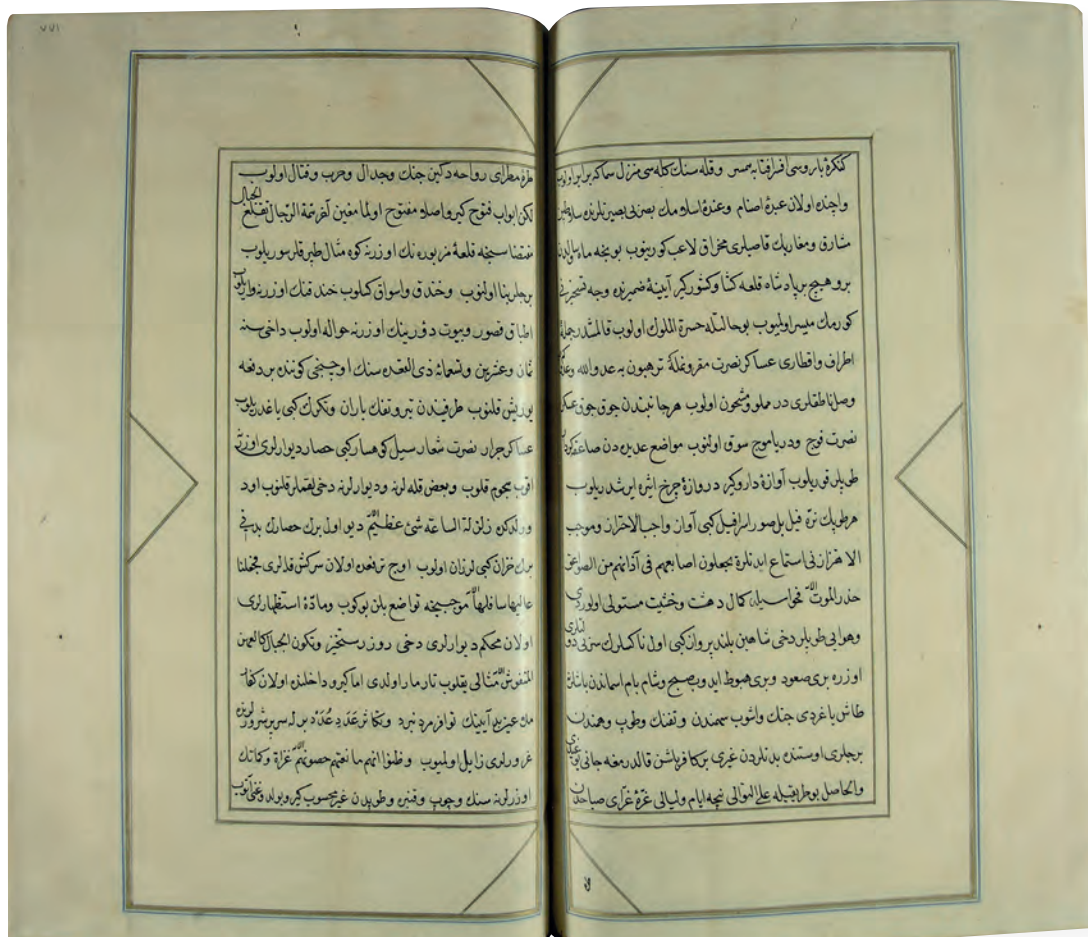 كنكرهٔ باروسى افسر افتابه همسر وقله سنك كله سى منزل سماكه برابر اولوب
واچنده اولان عبدهٔ اصنام وعندهٔ اسلامك بصرلى بصيرتلرنده
مشارق ومغاربك قاصيلرى مخراق لاعب كورينوب بونجه ماه وسالدن
برو هيچ بر پادشاه قلعه كشا وكشوركير آيينهٔ ضميرنده وجه تسخيرنى
كورمك ميسر اولميوب بو حالتله حسرة الملوك اولوب قالمشدر جملهٔ
اطراف واقطارى عساكر نصرت مقرونله ترهبون به عدو الله وعدوكم
وصل ناطقلرى در مملو ومشحون اولوب هر جانبندن جوق جوق عسكر
نصرت فوج ودرياموج سوق اولنوب مواضع عديده دن صاعقه كردار
طوپلر قوريلوب آوازهٔ داروكير دروازهٔ چرخ اثيره ايرشديريلوب
هر طوپك نرهٔ فيل بل صور اسرافيل كبى آواز واجب الاحتراز وموجب
الاهتزازنى استماع ايدنلره يجعلون اصابعهم فى آذانهم من الصواعق
حذر الموت الآية فحواسيله كمال دهشت وخشيت مستولى اولوردى
وهوايى طوپلر دخى شاهين بلند پرواز كبى اول ناكسلرك سزلرى
اوزره برى صعود وبرى هبوط ايدوب صبح وشام بام اسماندن باشلرينه
طاش ياغردى جنك واشوب سمندن وتفنك وطوپ وهمندن
برجلرى اوستنده بدنلردن غيرى بر كافر باشن قالدرمغه جانى يوغدى
والحاصل بو طريقيله على التوالى نيچه ايام وليالى غرهٔ غرّاى صباحدن
طرهٔ مطراى رواحه دكين جنك وجدال وحرب وقتال اولوب
لكن ابواب فتوح كيرو اصلا مفتوح اولما مغين آخر همة الرجال تقلع الجبال
مقتضاسنجه قلعهٔ مزبوره نك اوزرنه كوه مثال طپراقلر سوريلوب
برجلر بنا اولنوب وخندق واسواق كملوب خندقنك اوزرنه واريلوب
اطباق قصور وبيوت دورينك اوزرنه حواله اولوب داخى سنه
ثمان وعشرين وتسعمائه ذى القعده سنك اوچنجى كوننده بر دفعه
يوريش قلنوب طرفيندن تير وتفنك باران وتكرك كبى ياغديريلوب
عساكر جرار نصرت شعار سيل كوهسار كبى حصار ديوارلرى اوزرنه
اقوب هجوم قلوب وبعض قله لرنه وديوارلرنه دخى لقملر قلنوب اود
ورلدكده زلزلة الساعة شئ عظيم الآية ديو اول برك حصارك بدنى
برك خزان كبى لرزان اولوب اوج ترفعده اولان سركش قله لرى فجعلنا
عاليها سافلها الآية موجبنجه تواضع بلن بوكوب ومادّهٔ استظهارلرى
اولان محكم ديوارلرى دخى روز رستخيز وتكون الجبال كالعهن
المنفوش الآية مثالى يقلوب تارمار اولدى اما كيرو داخلنده اولان كفار
مك عيز بد آيينك توافر مرد نبرد وتكاثر عَدَد وعُدَد برله سر پر شرورلرنده
غرورلرى زايل اولميوب وظنوا انهم مانعتهم حصونهم الآية غزاة وكماتك
اوزرلرنه سنك وچوپ وقنبره وطوپدن غير محسوب كيرو بولد وغنى آتوب